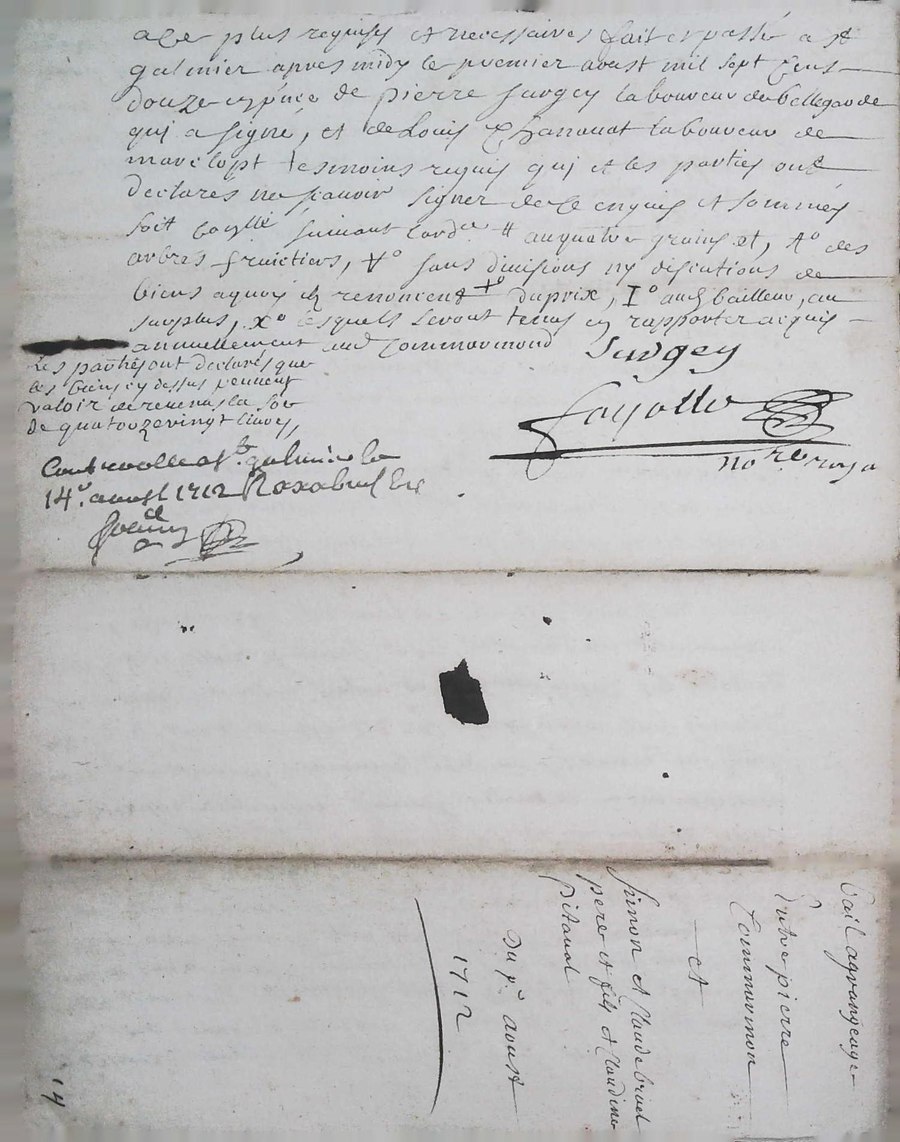 a ce plus requises et necessaires fait et passé a st
galmier apres midy le premier aoust mil sept cens
douze en pnce de pierre Surgey laboureur de bellegarde
qui a signé, et de Louis laboureur de
tesmoins requis qui et les parties ont
declares ne scavoir signer de ce enquis et sommés
soit suivant lord.ce
arbres fruictiers, sans divisions ny discutions de
biens a quoy ils renoncent du prix, aud bailleur, au
surplus, lesquels seront tenus en rapporter acquis
annuellement aud Commarmond Surgey
Les parties ont declarés que
les biens cy dessus peuvent
valoir de revenus la so.e
de quatorze vingt livres,
Fayolle
no.re roya
Controollé a st galmier le
14.e aoust 1712
Bail a grangeage
Entre pierre
Commarmon
et
Simon et Claude
pere et fils et Claudine
Pitaval
Du p.er aoust
1712
14